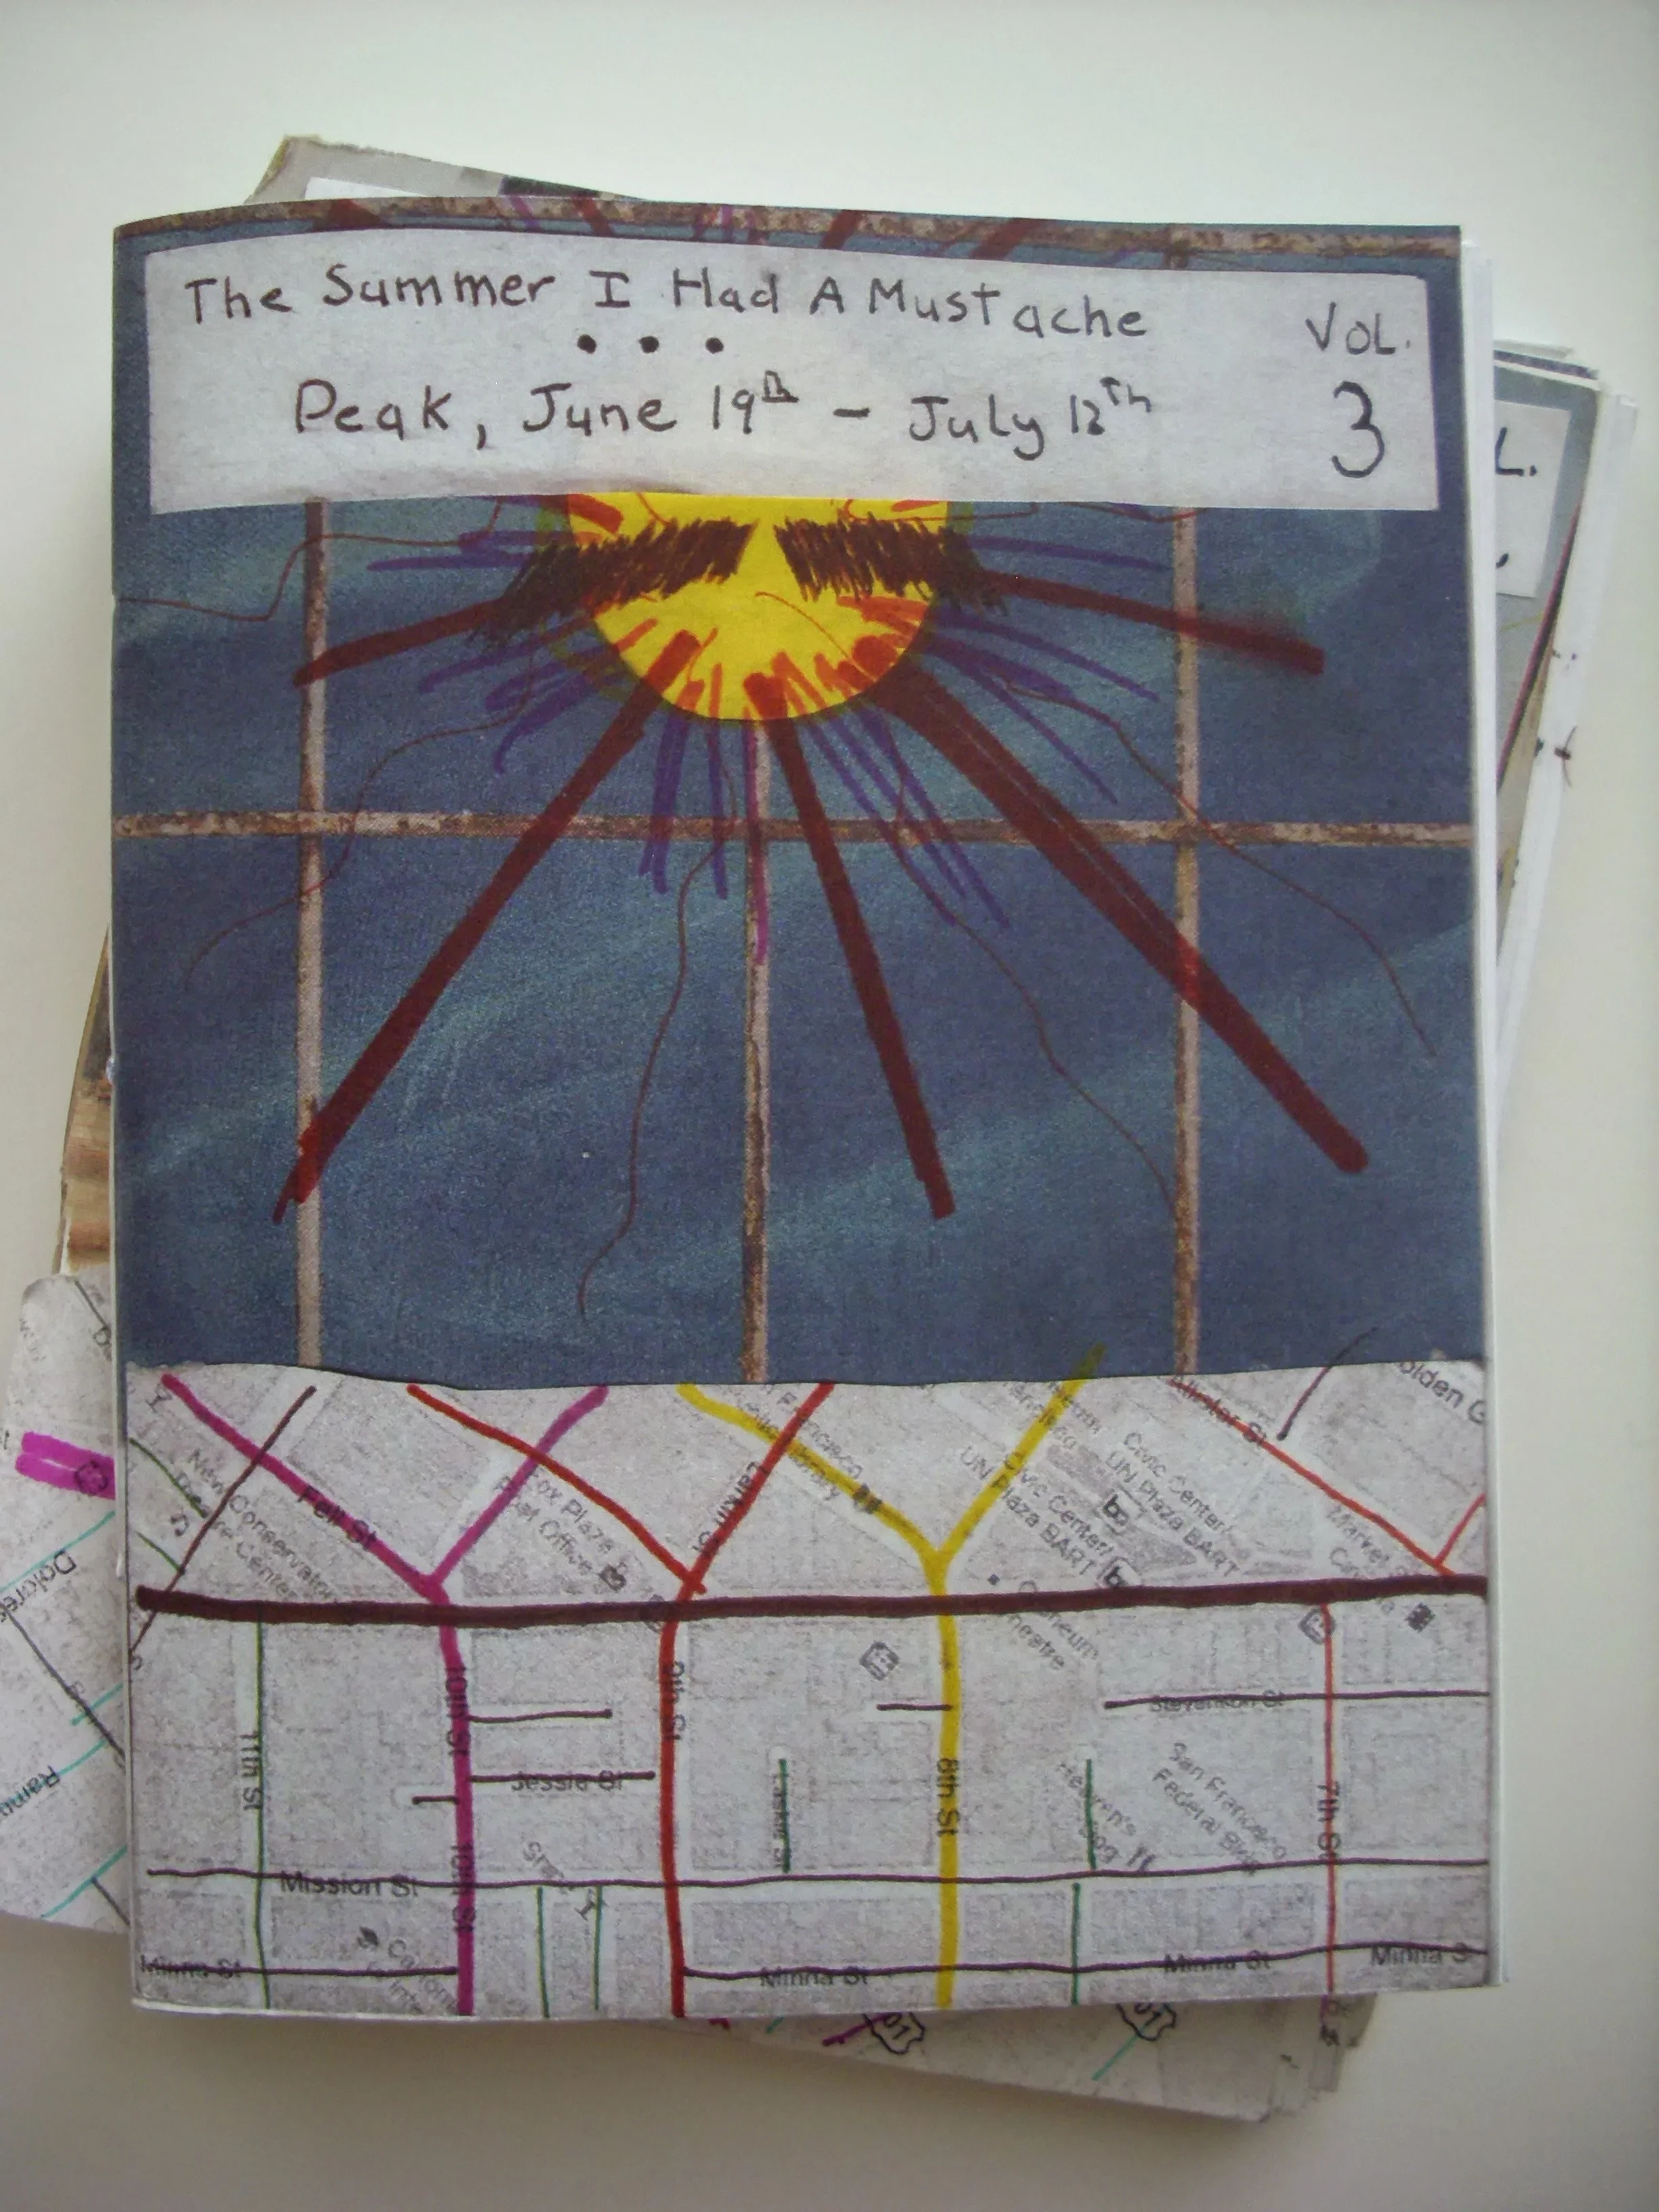 The Summer I Had A Mustache
• • •
Peak, June 19th – July 12th
VOL.
3
L.
Golden G
Allister St
Fell St
New Conservatory
Center
Fox Plaza
Post Office
Larkin St
San Francisco
Library
Civic Center/
UN Plaza BART
Civic Center/
UN Plaza BART
Market
Theatre
10th St
9th St
Stevenson St
11th St
Jessie St
8th St
7th St
San Francisco
Federal Bldg
Mission St
10th St
Minna St
Minna St
Minna St
Minna S
Dolores
101
101